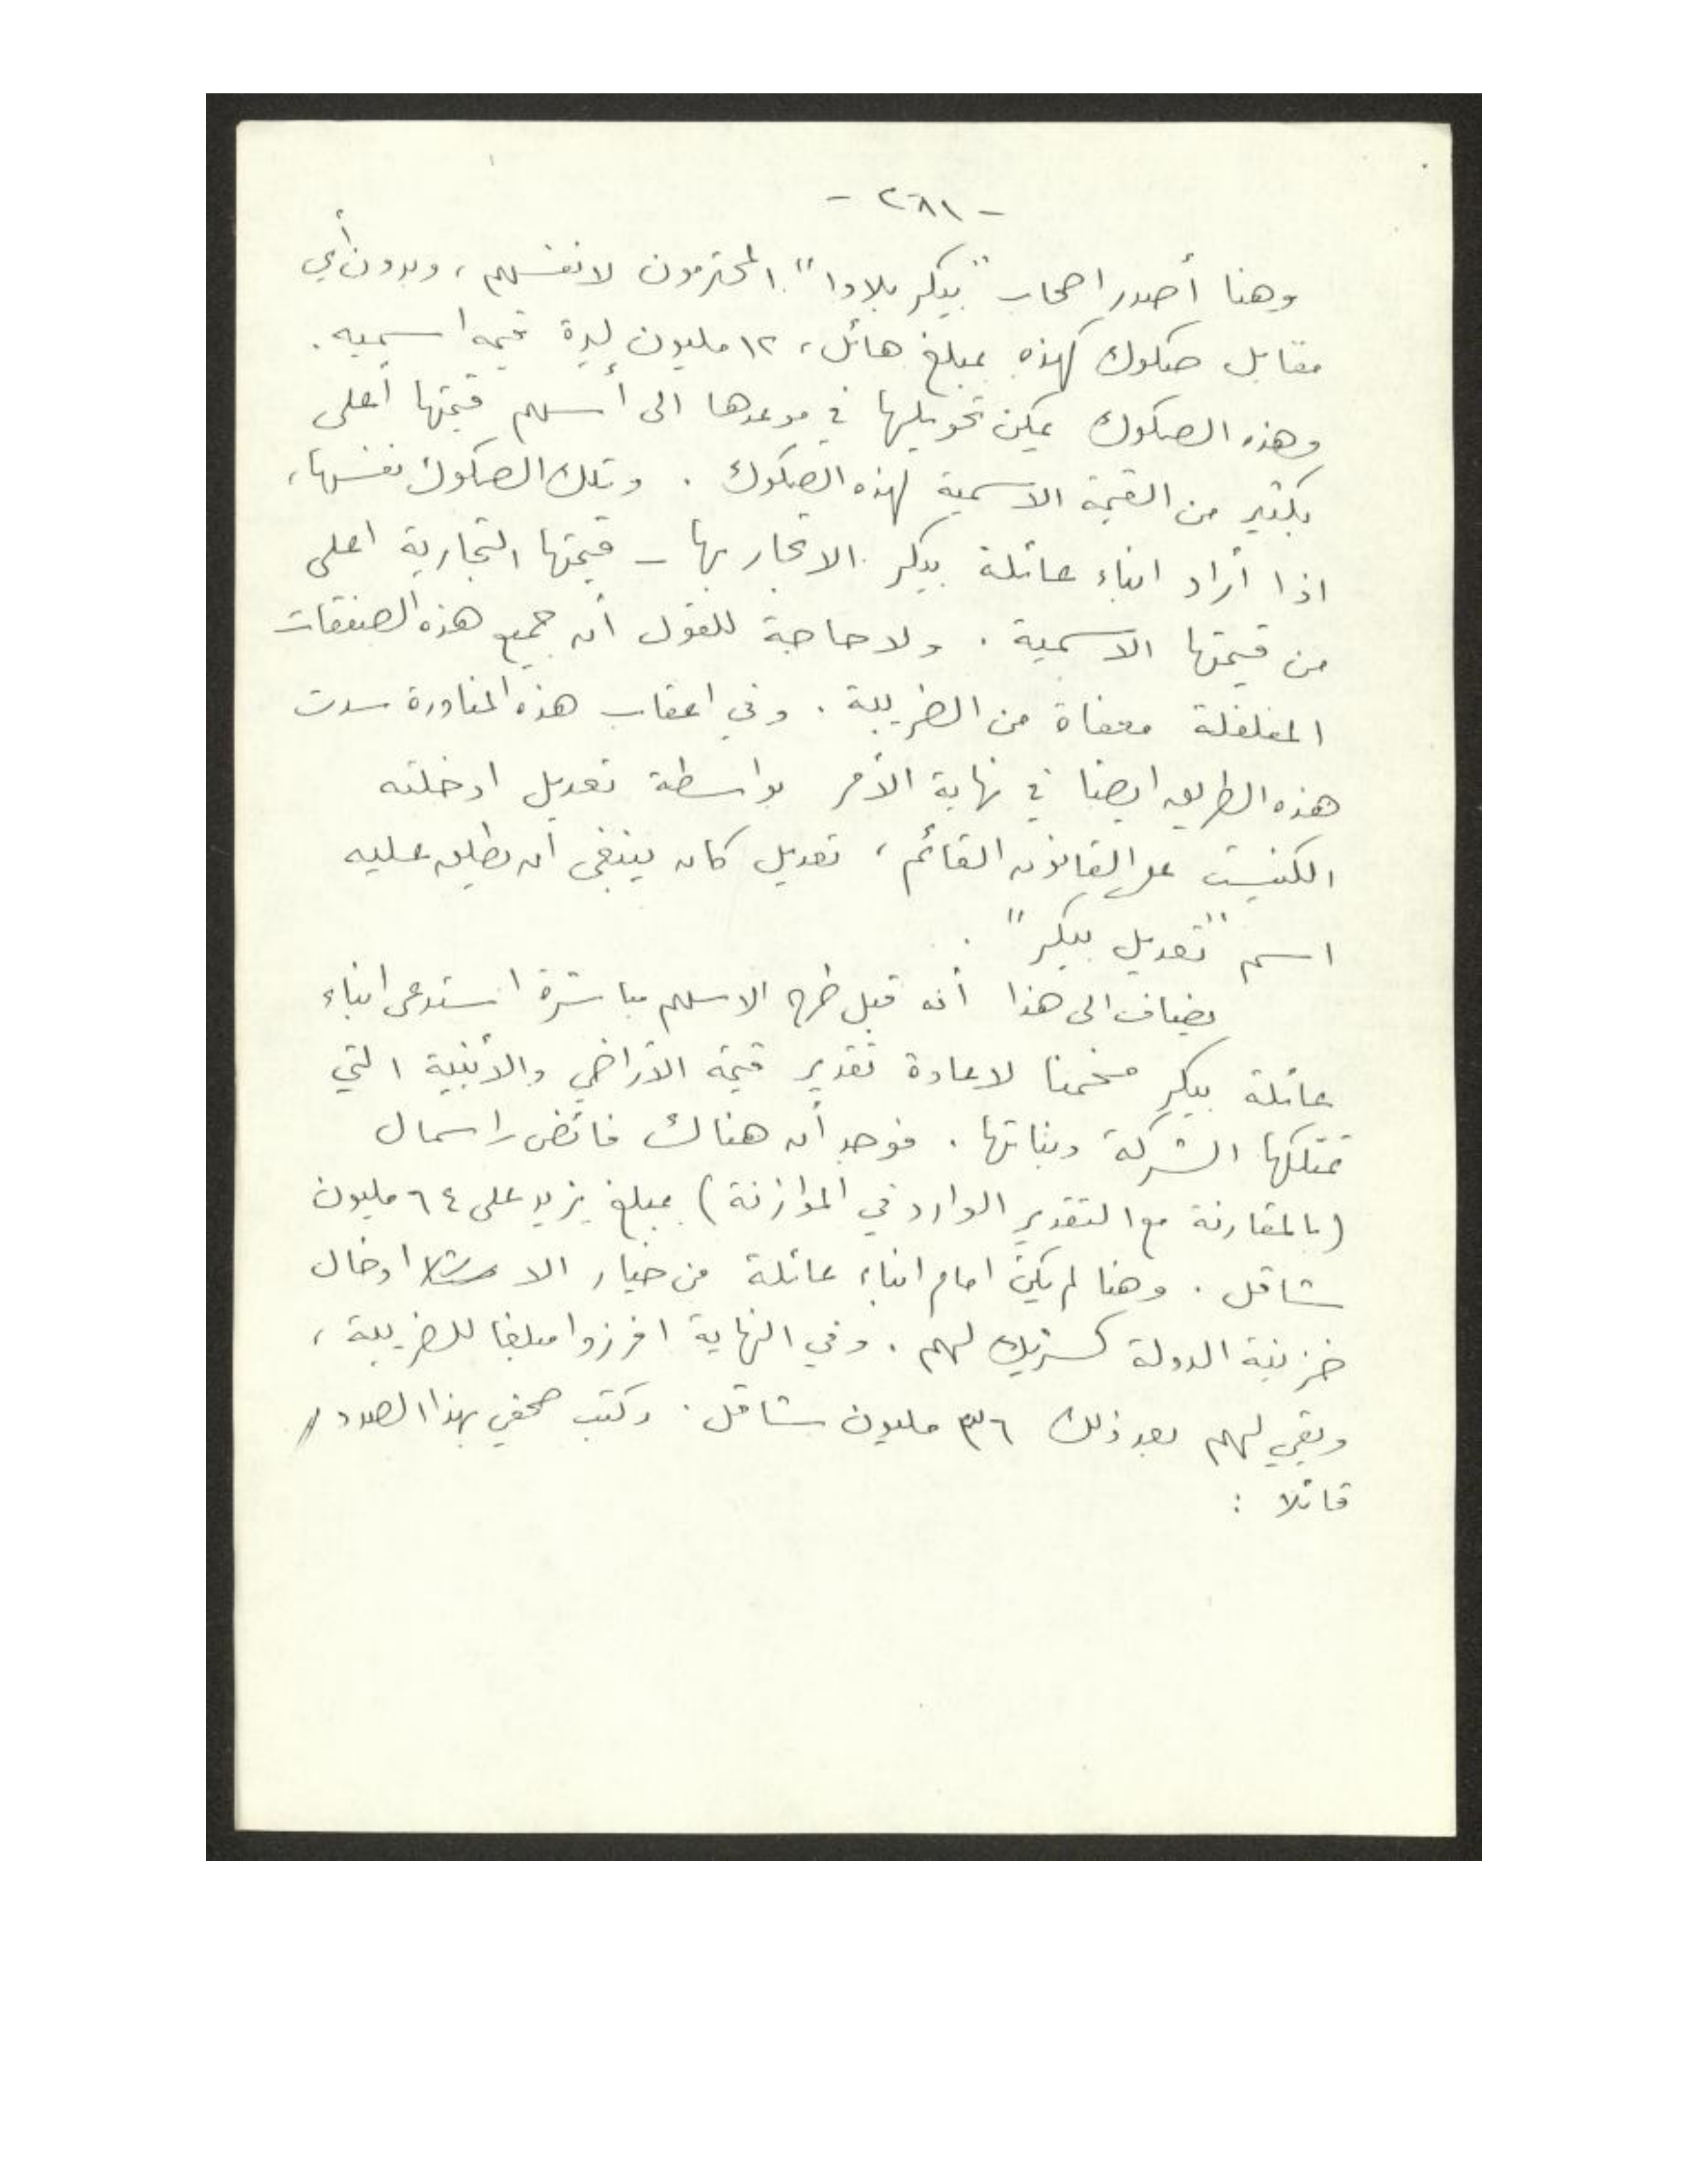 - ٢٨١ -
وهنا أصدر اصحاب "بيكر بلادا" المحترمون لانفسهم، وبدون أي
مقابل صكوك كهذه بمبلغ هائل، ١٢ مليون ليرة قيمه اسميه.
وهذه الصكوك يمكن تحويلها في موعدها الى أسهم قيمتها أعلى
بكثير من القيمة الاسمية لهذه الصكوك. وتلك الصكوك نفسها،
اذا أراد ابناء عائلة بيكر الاتجار بها - قيمتها التجارية اعلى
من قيمتها الاسمية. ولا حاجة للقول أن جميع هذه الصفقات
المغلغلة معفاة من الضريبة. وفي اعقاب هذه المناورة سدت
هذه الطريق ايضا في نهاية الأمر بواسطة تعديل ادخلته
الكنيست على القانون القائم، تعديل كان ينبغي أن يطلق عليه
اسم "تعديل بيكر".
يضاف الى هذا أنه قبل طرح الاسهم مباشرة استدعى ابناء
عائلة بيكر مخمنا لاعادة تقدير قيمة الأراضي والأبنية التي
تمتلكها الشركة وبناتها. فوجد أن هناك فائض راسمال
(بالمقارنة مع التقدير الوارد في الموازنة) بمبلغ يزيد على ٦٤ مليون
شاقل. وهنا لم يكن امام ابناء عائلة من خيار الا ادخال
خزينة الدولة كشريك لهم. وفي النهاية افرزوا مبلغا للضريبة،
وبقي لهم بعد ذلك ٣٦ مليون شاقل. وكتب صحفي بهذا الصدد
قائلا :